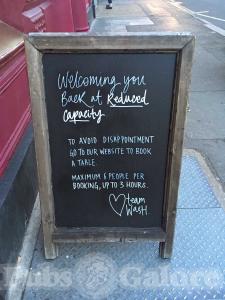 Welcoming you
Back at Reduced
Capacity
TO AVOID DISAPPOINTMENT
GO TO OUR WEBSITE TO BOOK
A TABLE.
MAXIMUM 6 PEOPLE PER
BOOKING, UP TO 3 HOURS.
team
WASH.
Pubs Galore